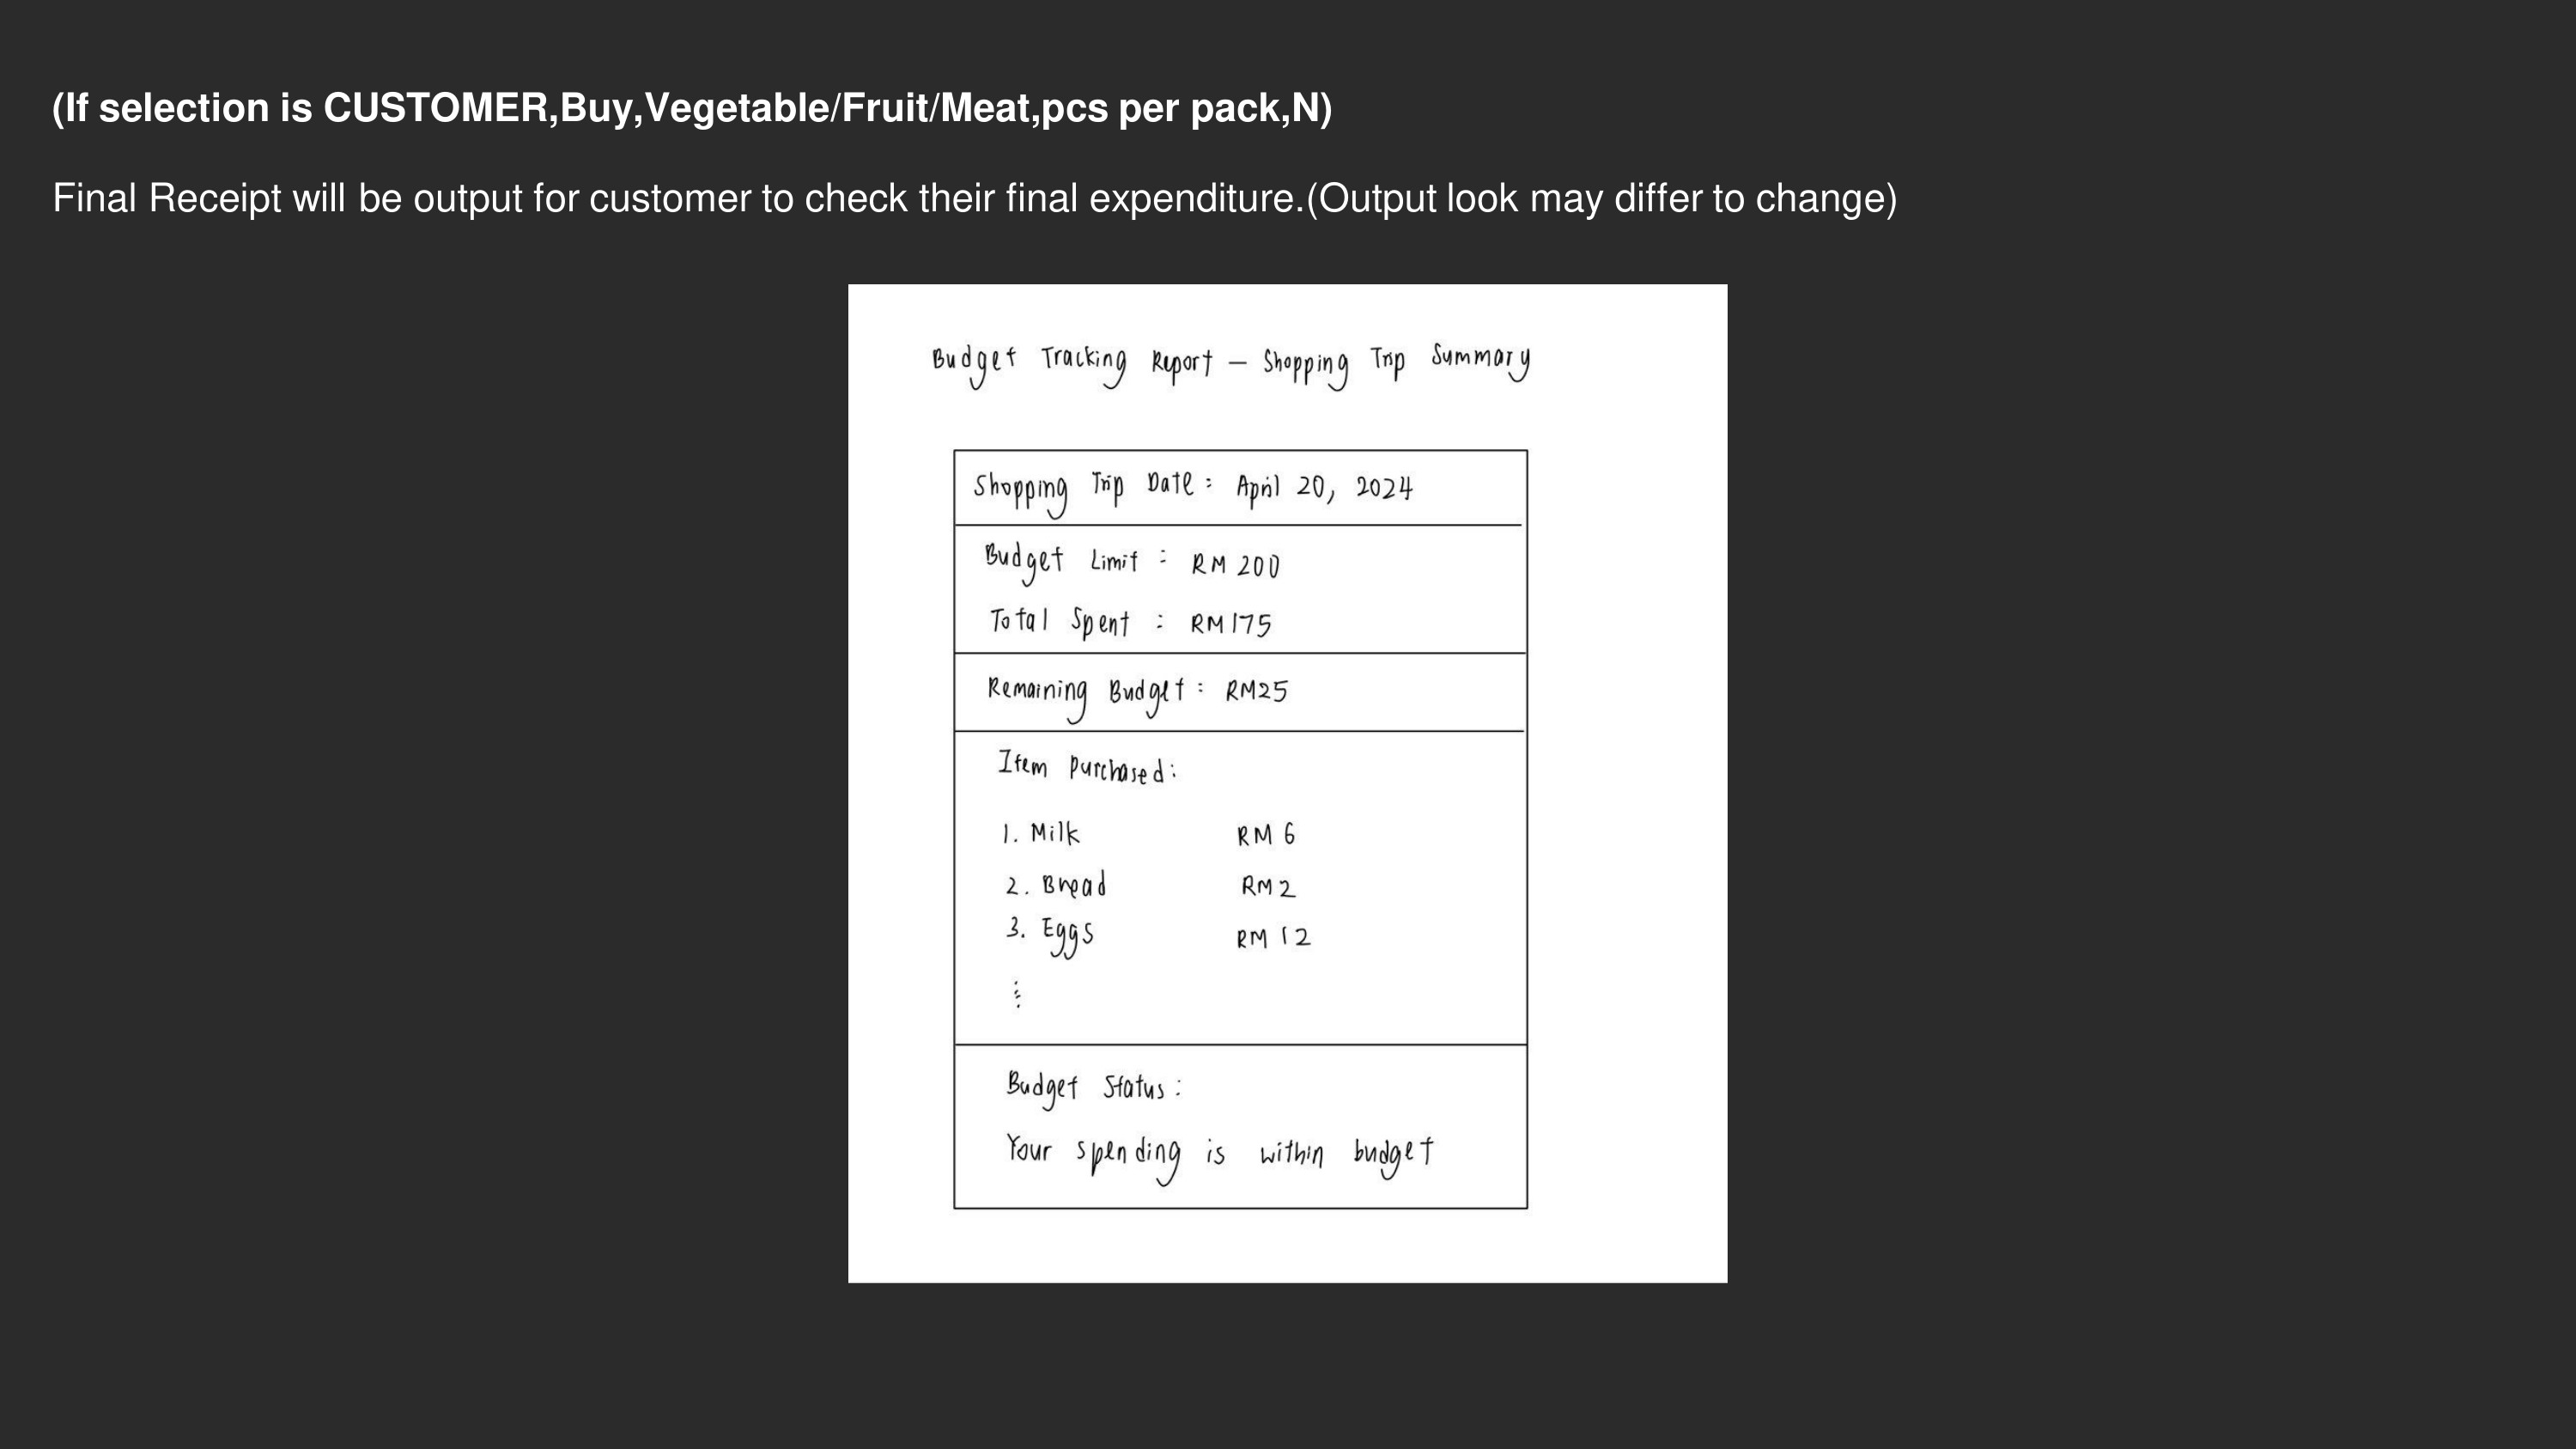 (If selection is CUSTOMER,Buy,Vegetable/Fruit/Meat,pcs per pack,N)
Final Receipt will be output for customer to check their final expenditure.(Output look may differ to change)
Budget Tracking Report – Shopping Trip Summary
Shopping Trip Date : April 20, 2024
Budget Limit : RM 200
Total Spent : RM175
Remaining Budget : RM25
Item Purchased :
1. Milk RM 6
2. Bread RM2
3. Eggs RM 12
⋮
Budget Status :
Your spending is within budget